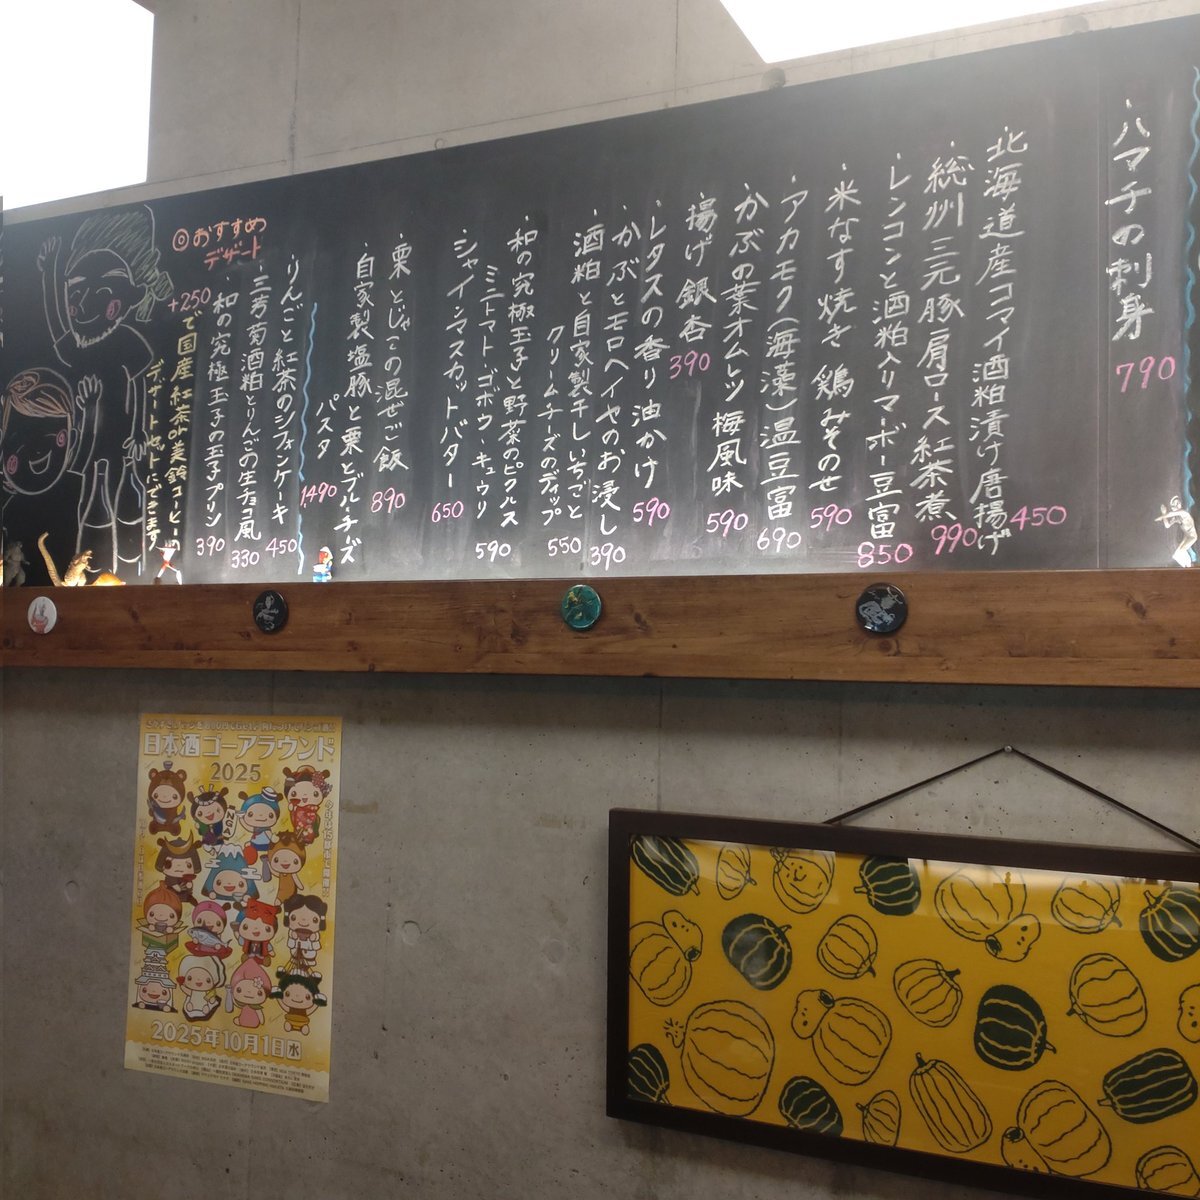 ・ハマチの刺身 790
北海道産コマイ酒粕漬け唐揚げ 450
・総州三元豚肩ロース紅茶煮 990
・レンコンと酒粕入りマーボー豆富 850
・米なす焼き 鶏みそのせ 590
・アカモク(海藻)温豆富 690
・かぶの葉オムレツ 梅風味 590
・揚げ銀杏 390
・レタスの香り油かけ 590
・かぶとモロヘイヤのお浸し 390
・酒粕と自家製干しいちごと
クリームチーズのディップ 550
・和の究極玉子と野菜のピクルス
ミニトマト・ゴボウ・キュウリ 590
・シャインマスカットバター 650
・栗とじゃこの混ぜご飯 890
・自家製塩豚と栗とブルーチーズ
パスタ 1490
◎おすすめ
デザート
・りんごと紅茶のシフォンケーキ 450
・三芳菊酒粕とりんごの生チョコ風 330
・和の究極玉子の玉子プリン 390
+250で国産紅茶か美鈴コーヒーの
デザートセットにできます
日本酒ゴーアラウンド
2025
2025年10月1日水